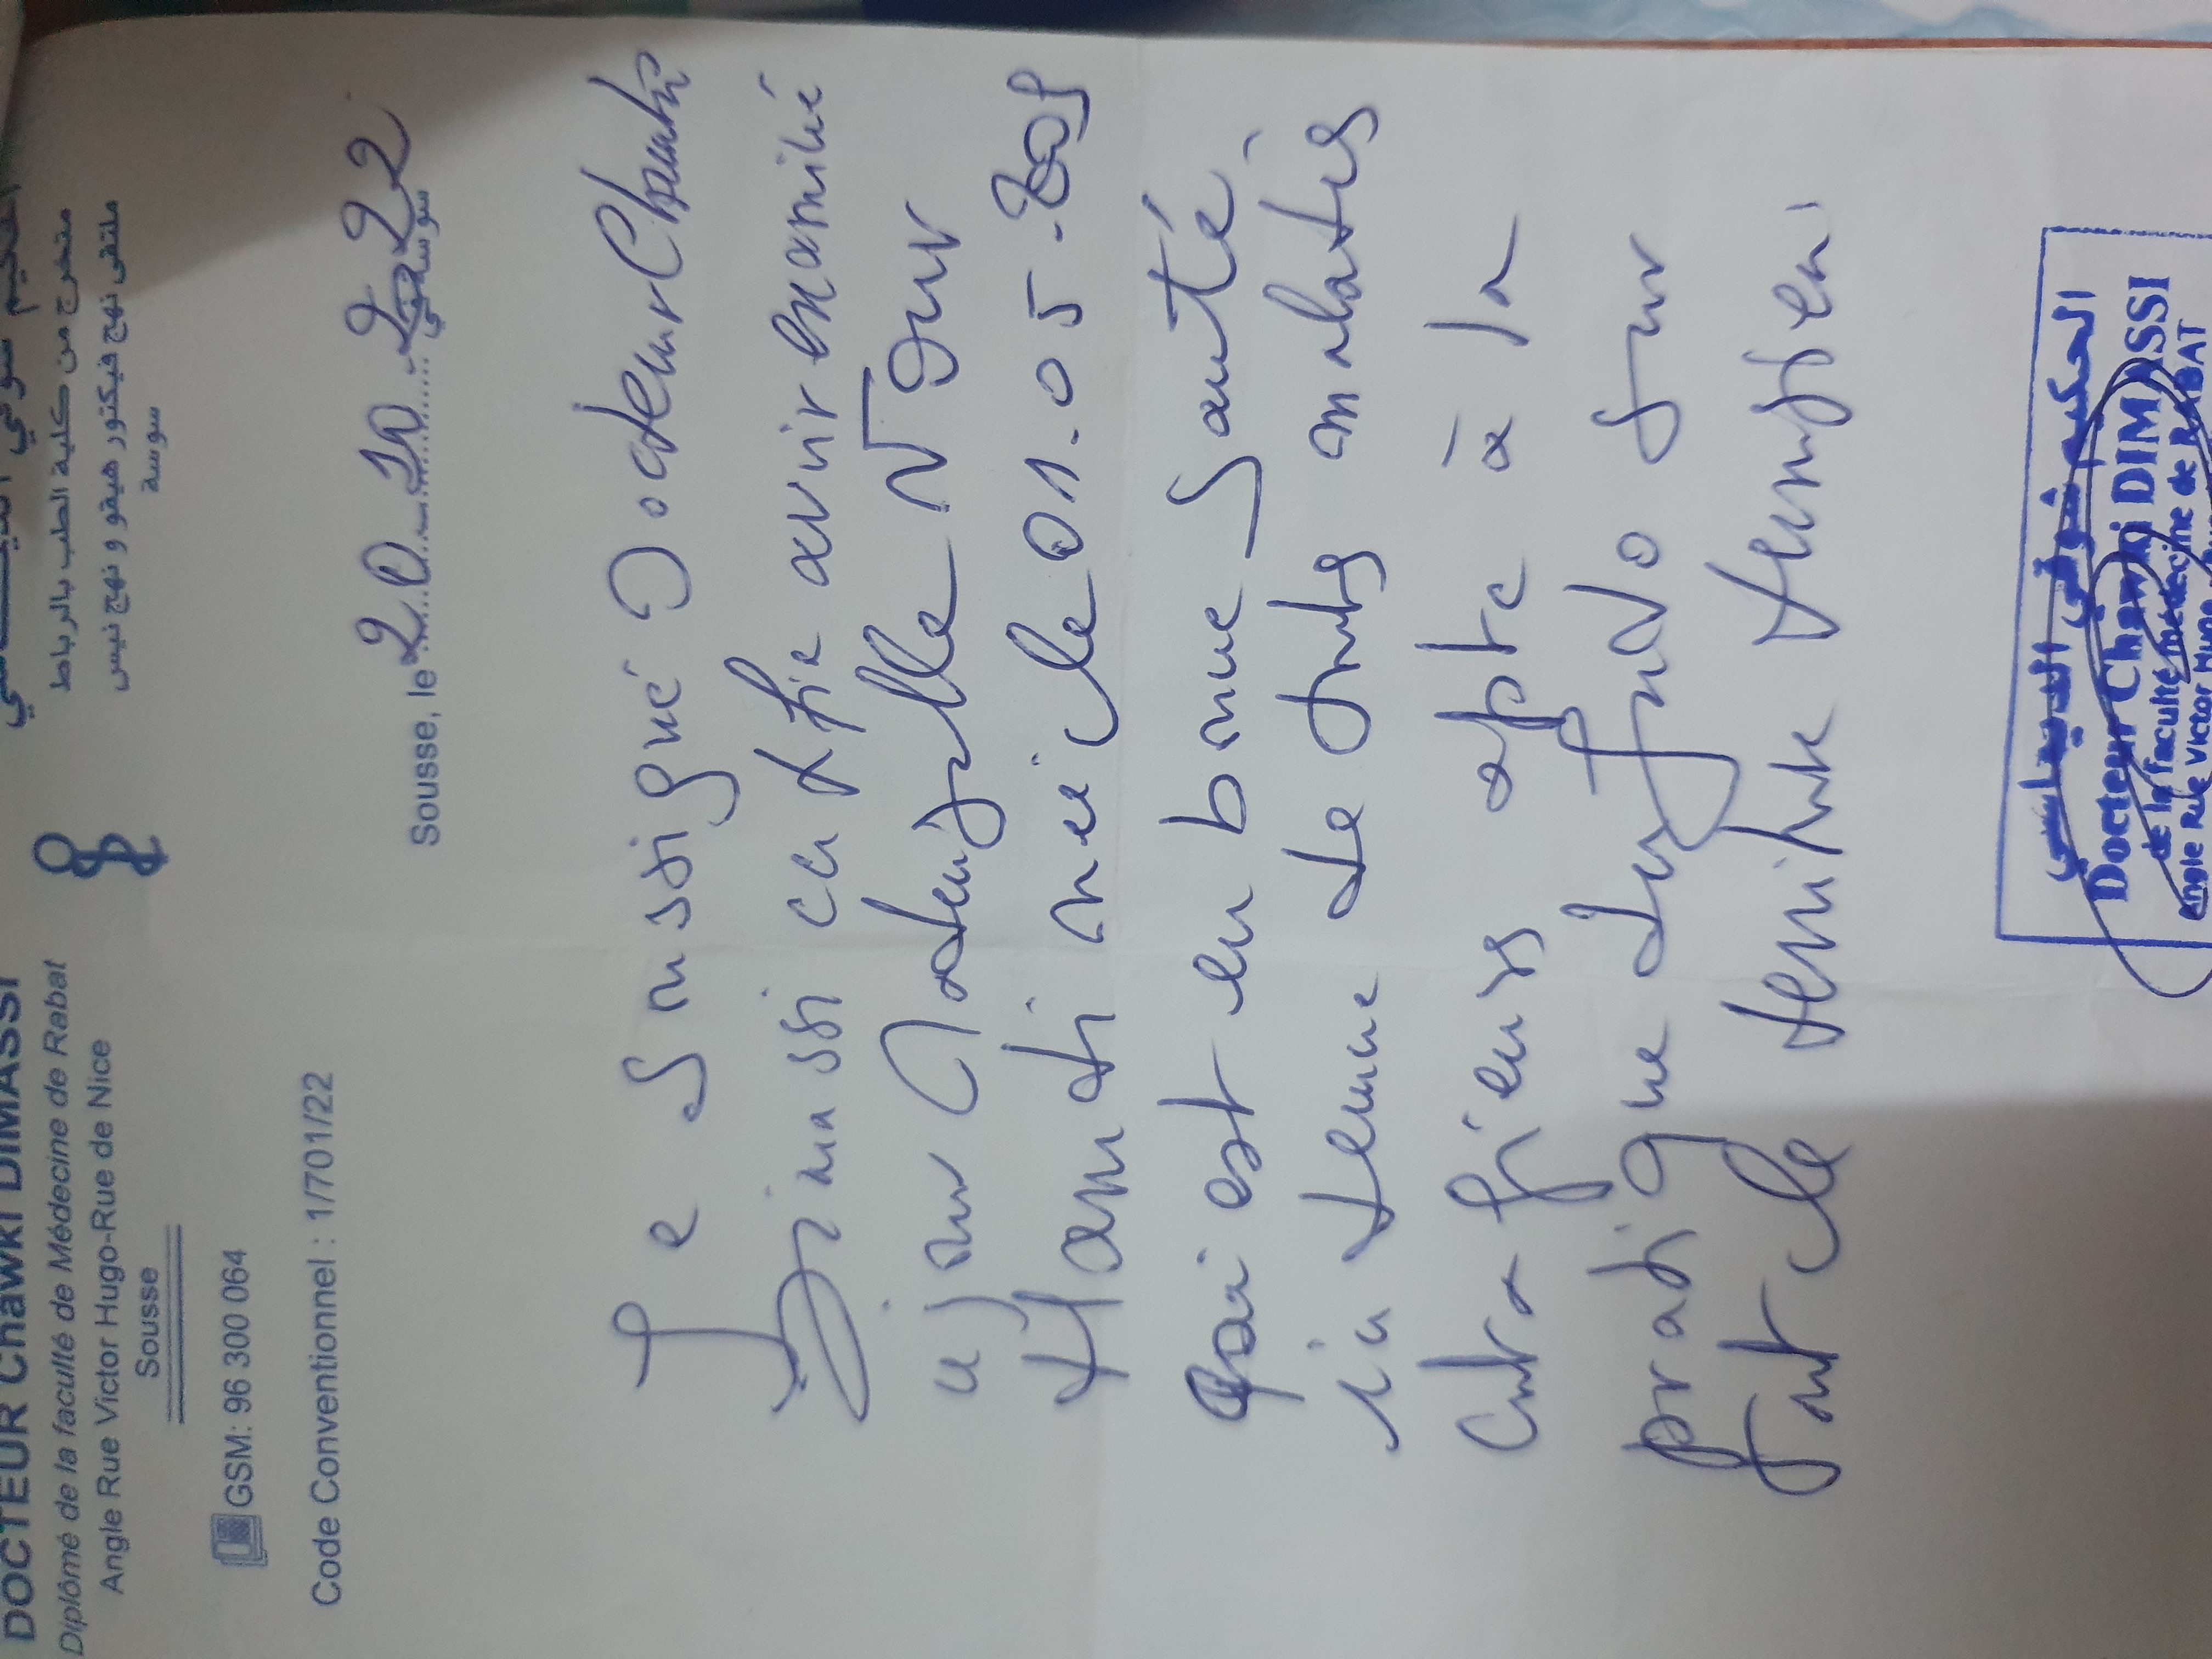 DOCTEUR Chawki DIMASSI
Diplômé de la faculté de Médecine de Rabat
Angle Rue Victor Hugo-Rue de Nice
Sousse
متخرج من كلية الطب بالرباط
ملتقى نهج فيكتور هيقو و نهج نيس
سوسة
GSM: 96 300 064
Code Conventionnel : 1/701/22
Sousse, le 20.10.2022 سوسة في
Je soussigné Docteur Chawki
Dimassi certifie avoir examiné
ce jour Mademoiselle Nour
Hamdi née le 01.05.
Qui est en bonne santé,
indemne de toutes maladies
contagieuses apte à la
pratique du sur
tout le
الحكيم شوقي الديماسي
Docteur Chawki DIMASSI
de la faculté médecine de RABAT
angle Rue Victor Hugo